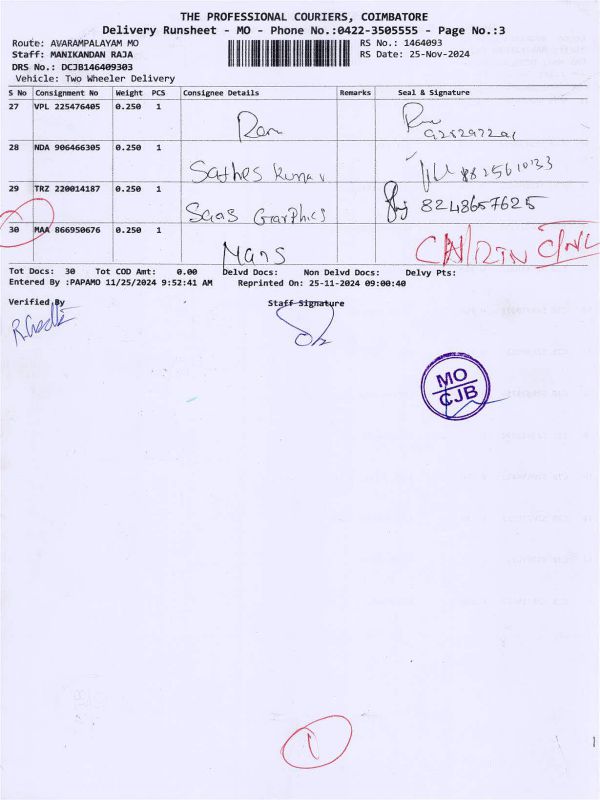 THE PROFESSIONAL COURIERS, COIMBATORE
Delivery Runsheet - MO - Phone No.:0422-3505555 - Page No.:3
Route: AVARAMPALAYAM MO RS No.: 1464093
Staff: MANIKANDAN RAJA RS Date: 25-Nov-2024
DRS No.: DCJB146409303
Vehicle: Two Wheeler Delivery
S No Consignment No Weight PCS Consignee Details Remarks Seal & Signature
27 VPL 225476405 0.250 1 Ram
28 NDA 906466305 0.250 1 Sathes Kumar 8825610133
29 TRZ 220014187 0.250 1 Saas Grarphics 8248657625
30 MAA 866950676 0.250 1 Mans
Tot Docs: 30 Tot COD Amt: 0.00 Delvd Docs: Non Delvd Docs: Delvy Pts:
Entered By :PAPAMO 11/25/2024 9:52:41 AM Reprinted On: 25-11-2024 09:00:40
Verified By Staff Signature
MO
CJB
1